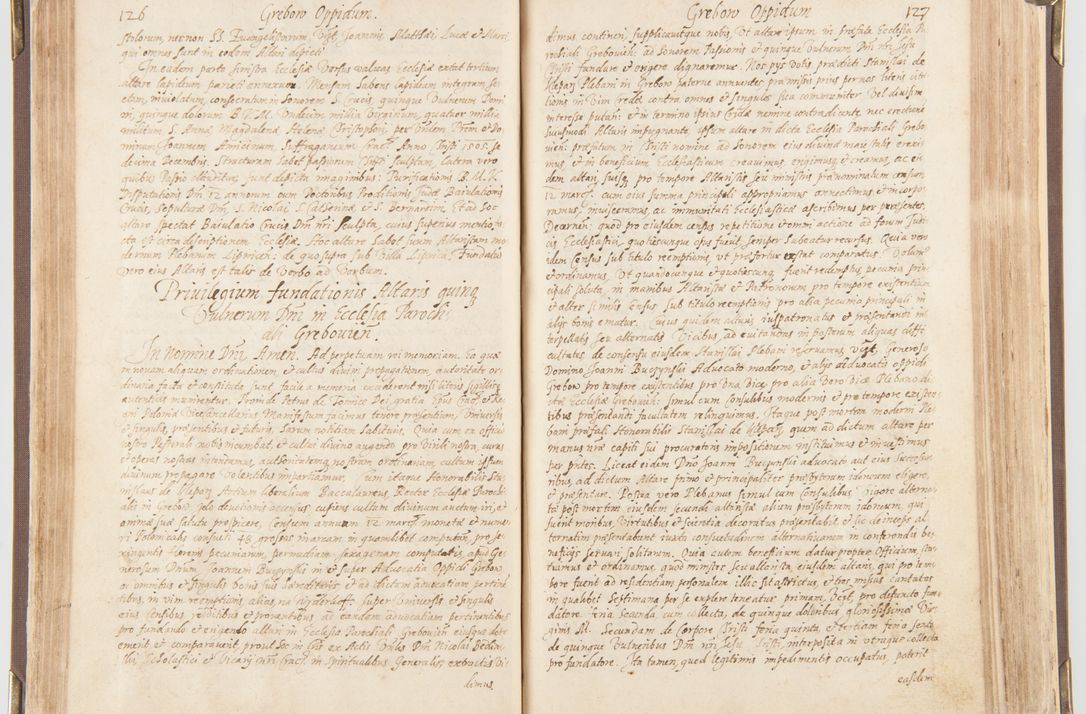 126 Grebow Oppidum.
stolorum, necnon SS. Evangelistarum, Vizt Joannis, Matthæi Lucæ et Marci
qui omnes sunt in eodem Altari depicti.
In eadem parte sinistra Ecclesiæ versus valuas Ecclesiæ extat tertium
altare lapidum parieti annexum. Mensam habens lapideam integram, se
ctam, inviolatam, consecratum in honorem S. Crucis, quinque Vulnerum Domi
ni, quinque dolorum B. V. M. Undecim millia Virginum, quatuor millia
militum S. Annæ, Magdalenæ, Helenæ Cristophori, per Rdum Prem et Do
minum Joannem Amicinum, Suffraganeum Crac. Anno Christi 1505. se
decima Decembris. Structuram habet passionem Christi sculptam, latera vero
quibus Passio clauditur, sunt depicta imaginibus: Purificationis B. M. V.
Disputationis Dni 12 annorum cum Doctoribus Proditionis Judæ Baiulationis
Crucis, Sepulturæ Dni, S. Nicolai, S. Catherinæ et S. Bernardini. Et ad hoc
altare spectat Baiulatio Crucis Dni nri sculpta, cuius superius mentio fa
cta est circa descriptionem Ecclesiæ. Hoc altare habet suum Altaristam mo
dernum Plebanum Lipnicen: de quo supra sub Villa Lipnica, Fundatio
vero eius Altaris est talis de Verbo ad Verbum.
Privilegium fundationis Altaris quinq
Vulnerum Dni in Ecclesia Parochi
ali Grebovien.
In Nomine Dni Amen. Ad perpetuam rei memoriam. Ea quæ
in novam aliquam ordinationem et cultus divini propagationem, autoritate or
dinaria facta et constituta sunt facile a memoria exciderent nisi litteris sigillisq
autenticis munirentur. Proinde Petrus de Tomice Dei gratia Epus Crac et Re
gni Poloniæ Vicecancellarius Manifestum facimus tenore præsentium, Universis
et singulis, præsentibus et futuris, harum notitiam habituris. Quia cum ex officio
nostro Pastorali nobis incumbat, et cultui divino augendo pro Virili nostra, curas
et operas nostras intendamus, authoritatemq nostram ordinariam cultum ipsum
divinum propagare volentibus impartiamur. Cum itaque Honorabilis Sta
nislaus de Kleparz Artium liberalium Baccalaureus, Rector Ecclesiæ Parochi
alis in Grebow, zelo devotionis accensus cupiens cultum divinum auctum iri, et
animæ suæ saluti prospicere, Censum annuum 12 marcas monetæ et nume
ri Polonicalis consueti 48 grossos marcam in quamlibet computan, pro se
xingentis florenis pecuniarum, per medium sexagenam computatis, apud Ge
nerosum Dnum Joannem Buczynski in et super Advocatia Oppidi Grebow
ac omnibus et singulis bonis suis hæreditariis et ad dictam advocatiam pertinen
tibus, in vim reemptionis, alias na Wyderkaff super Universis et singulis
eius censibus, redditibus et proventibus ad eandem advocatiam pertinentibus
pro fundando et erigendo altari in Ecclesia Parochiali Grebovien eiusque dote
emerit et comparaverit, prout hoc in his ex Actis Vblis Dni Nicolai Bedlin
ski, Scholastici et Vicarij nri Crac in Spiritualibus Generalis extractis Vi
dimus.

Grebow Oppidum 127
dimus contineri, supplicavitque nobis, Vt altare ipsum in præfata Ecclesia Pa
rochiali Grebovien: ad honorem Passionis et quinque Vulnerum Dni nri Jesu
Christi fundare et erigere dignaremur. Nos pijs votis prædicti Stanislai de
Kleparz Plebani in Grebow paterne annuentes præmissis prius per nos literis cita
tionis in Vim Cridæ contra omnes et singulos sua communiter Vel divisim
interesse putan: et in termino ipsius Cridæ nemine contradicente, nec erectioni
huiusmodi Altaris impugnante, ipsum altare in dicta Ecclesia Parochiali Grebo
vien: præfatum in Christi nomine ad honorem eius divinæ maiestatis erexi
mus et in beneficium Ecclesiasticum creavimus, erigimusq et creamus, ac ei
dem altari, suisq pro tempore Altaristis seu ministris prænominatum censum
12 marcas. cum eius summa principali appropriamus annectimus et incorpo
ramus, inviscerimus, ac immunitati Ecclesiasticæ ascribimus per præsentes.
Decernen: quod pro eiusdem census repetitione et omni actione ad forum Judi
cis Ecclesiastici, quotiescunque opus fuerit, semper habeatur recursus. Quia vero
idem census sub titulo reemptionis, ut præfertur extat comparatus. Volum9
et ordinamus, Vt quandocunque et quotiescunq fuerit redemptus, pecunia prin
cipalis soluta, in manibus Altaristæ et Patronorum pro tempore existentium
et alter similis Census sub titulo reemptionis pro alia pecunia principali in
alijs bonis ematur. Cuius quidem altaris iuspatronatus et præsentandi in
terpellatis seu alternatis Vicibus, ad evitandas in posterum aliquas diffi
cultates de consensu eiusdem Stanislai Plebani reservamus, Vizt Generoso
Domino Joanni Buczynski Advocato moderno, et alijs advocatis oppidi
Grebow pro tempore existentibus pro Vna Vice, pro alia Vero Vice Plebano di
ctæ Ecclesiæ Grebovien: simul cum Consulibus modernis et pro tempore existen
tibus præsentandi facultatem relinquimus. Itaque post mortem moderni Ple
bani præfati Honorabilis Stanislai de Kleparz quem ad dictum altare per
manus nræ capiti sui procuratoris impositionem instituimus et investimus
per pntes. Liceat eidem Dno Joanni Buczynski advocato aut eius successo
ribus, ad dictum Altare primo et principaliter presbyterum idoneum eligere,
et præsentare. Postea vero Plebanus simul cum Consulibus, vigore alterna
tæ post mortem eiusdem secundi altaristæ alium presbyterum idoneum, qui
fuerit moribus, Virtutibus et scientia decoratus præsentabit et sic deinceps al
ternatim præsentabunt iuxta consuetudinem alternativarum in conferendis be
neficijs servari solitarum. Quia autem beneficium datur propter Officium, sta
tuimus et ordinamus, quod minister seu altarista, eiusdem altaris, qui pro tem
pore fuerit ad residentiam personalem illic sit astrictus, et tres missas cantatas
in qualibet septimana per se explere teneatur primam, Vizt, pro defuncto fun
datore feria secunda cum collecta, de quinque doloribus gloriosissimæ Vir
ginis M. Secundam de Corpore Christi feria quinta, et tertiam feria sexta
de quinque Vulneribus Dni nri Jesu Christi, interposita in utraque collecta
pro fundatore. Ita tamen, quod legitimis impedimentis occupatus, poterit
easdem